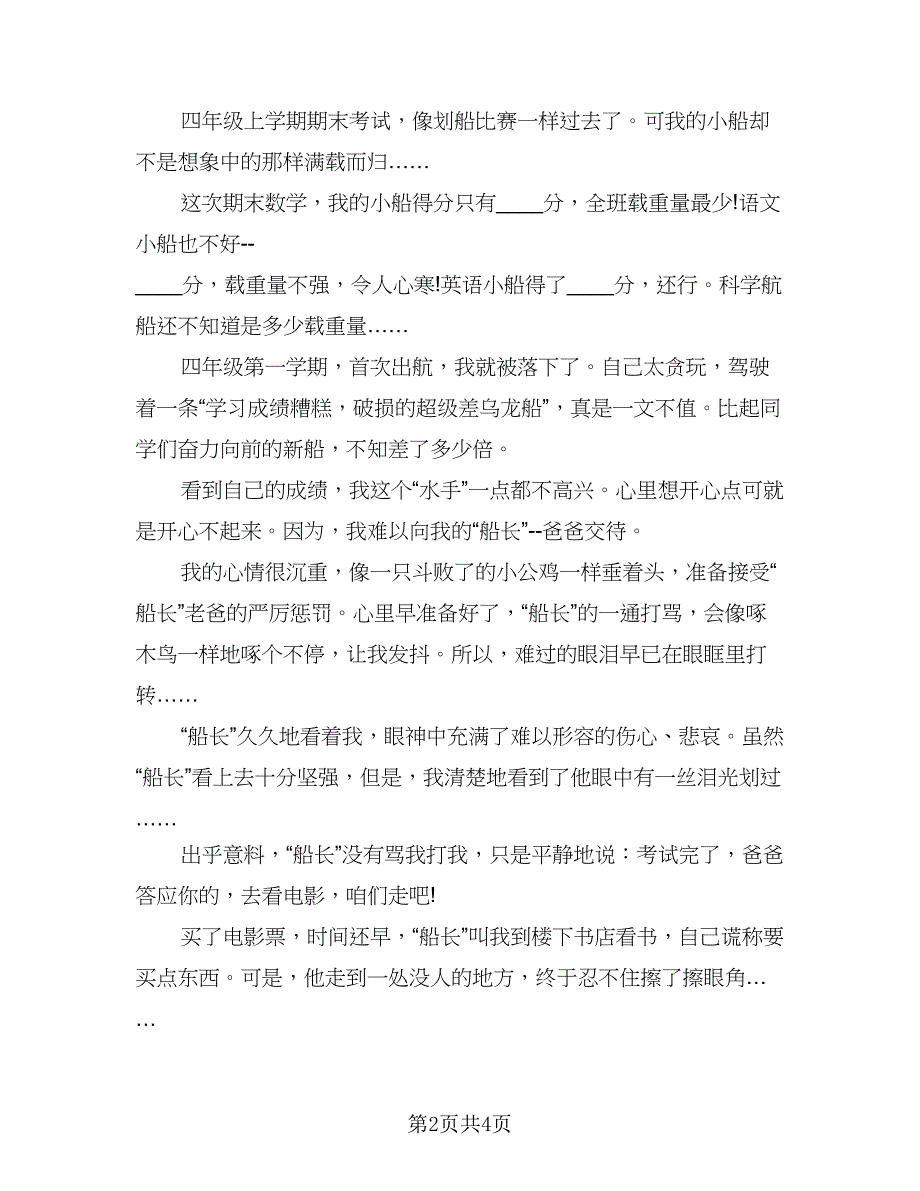 四年级上学期期末考试，像划船比赛一样过去了。可我的小船却
不是想象中的那样满载而归……
这次期末数学，我的小船得分只有_____分，全班载重量最少!语文
小船也不好--
_____分，载重量不强，令人心寒!英语小船得了_____分，还行。科学航
船还不知道是多少载重量……
四年级第一学期，首次出航，我就被落下了。自己太贪玩，驾驶
着一条“学习成绩糟糕，破损的超级差乌龙船”，真是一文不值。比起同
学们奋力向前的新船，不知差了多少倍。
看到自己的成绩，我这个“水手”一点都不高兴。心里想开心点可就
是开心不起来。因为，我难以向我的“船长”--爸爸交待。
我的心情很沉重，像一只斗败了的小公鸡一样垂着头，准备接受“
船长”老爸的严厉惩罚。心里早准备好了，“船长”的一通打骂，会像啄
木鸟一样地啄个不停，让我发抖。所以，难过的眼泪早已在眼眶里打
转……
“船长”久久地看着我，眼神中充满了难以形容的伤心、悲哀。虽然
“船长”看上去十分坚强，但是，我清楚地看到了他眼中有一丝泪光划过
……
出乎意料，“船长”没有骂我打我，只是平静地说：考试完了，爸爸
答应你的，去看电影，咱们走吧!
买了电影票，时间还早，“船长”叫我到楼下书店看书，自己谎称要
买点东西。可是，他走到一处没人的地方，终于忍不住擦了擦眼角…
…
第2页共4页